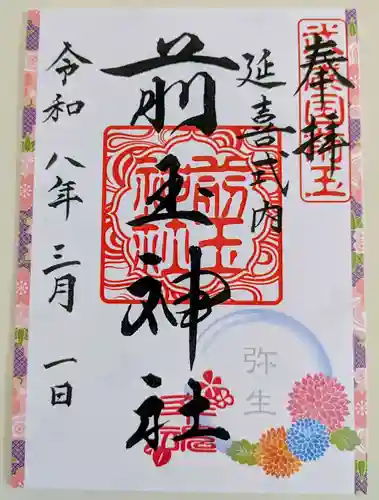 奉拝
延喜式内
前玉神社
令和八年三月一日
前玉神社
弥生